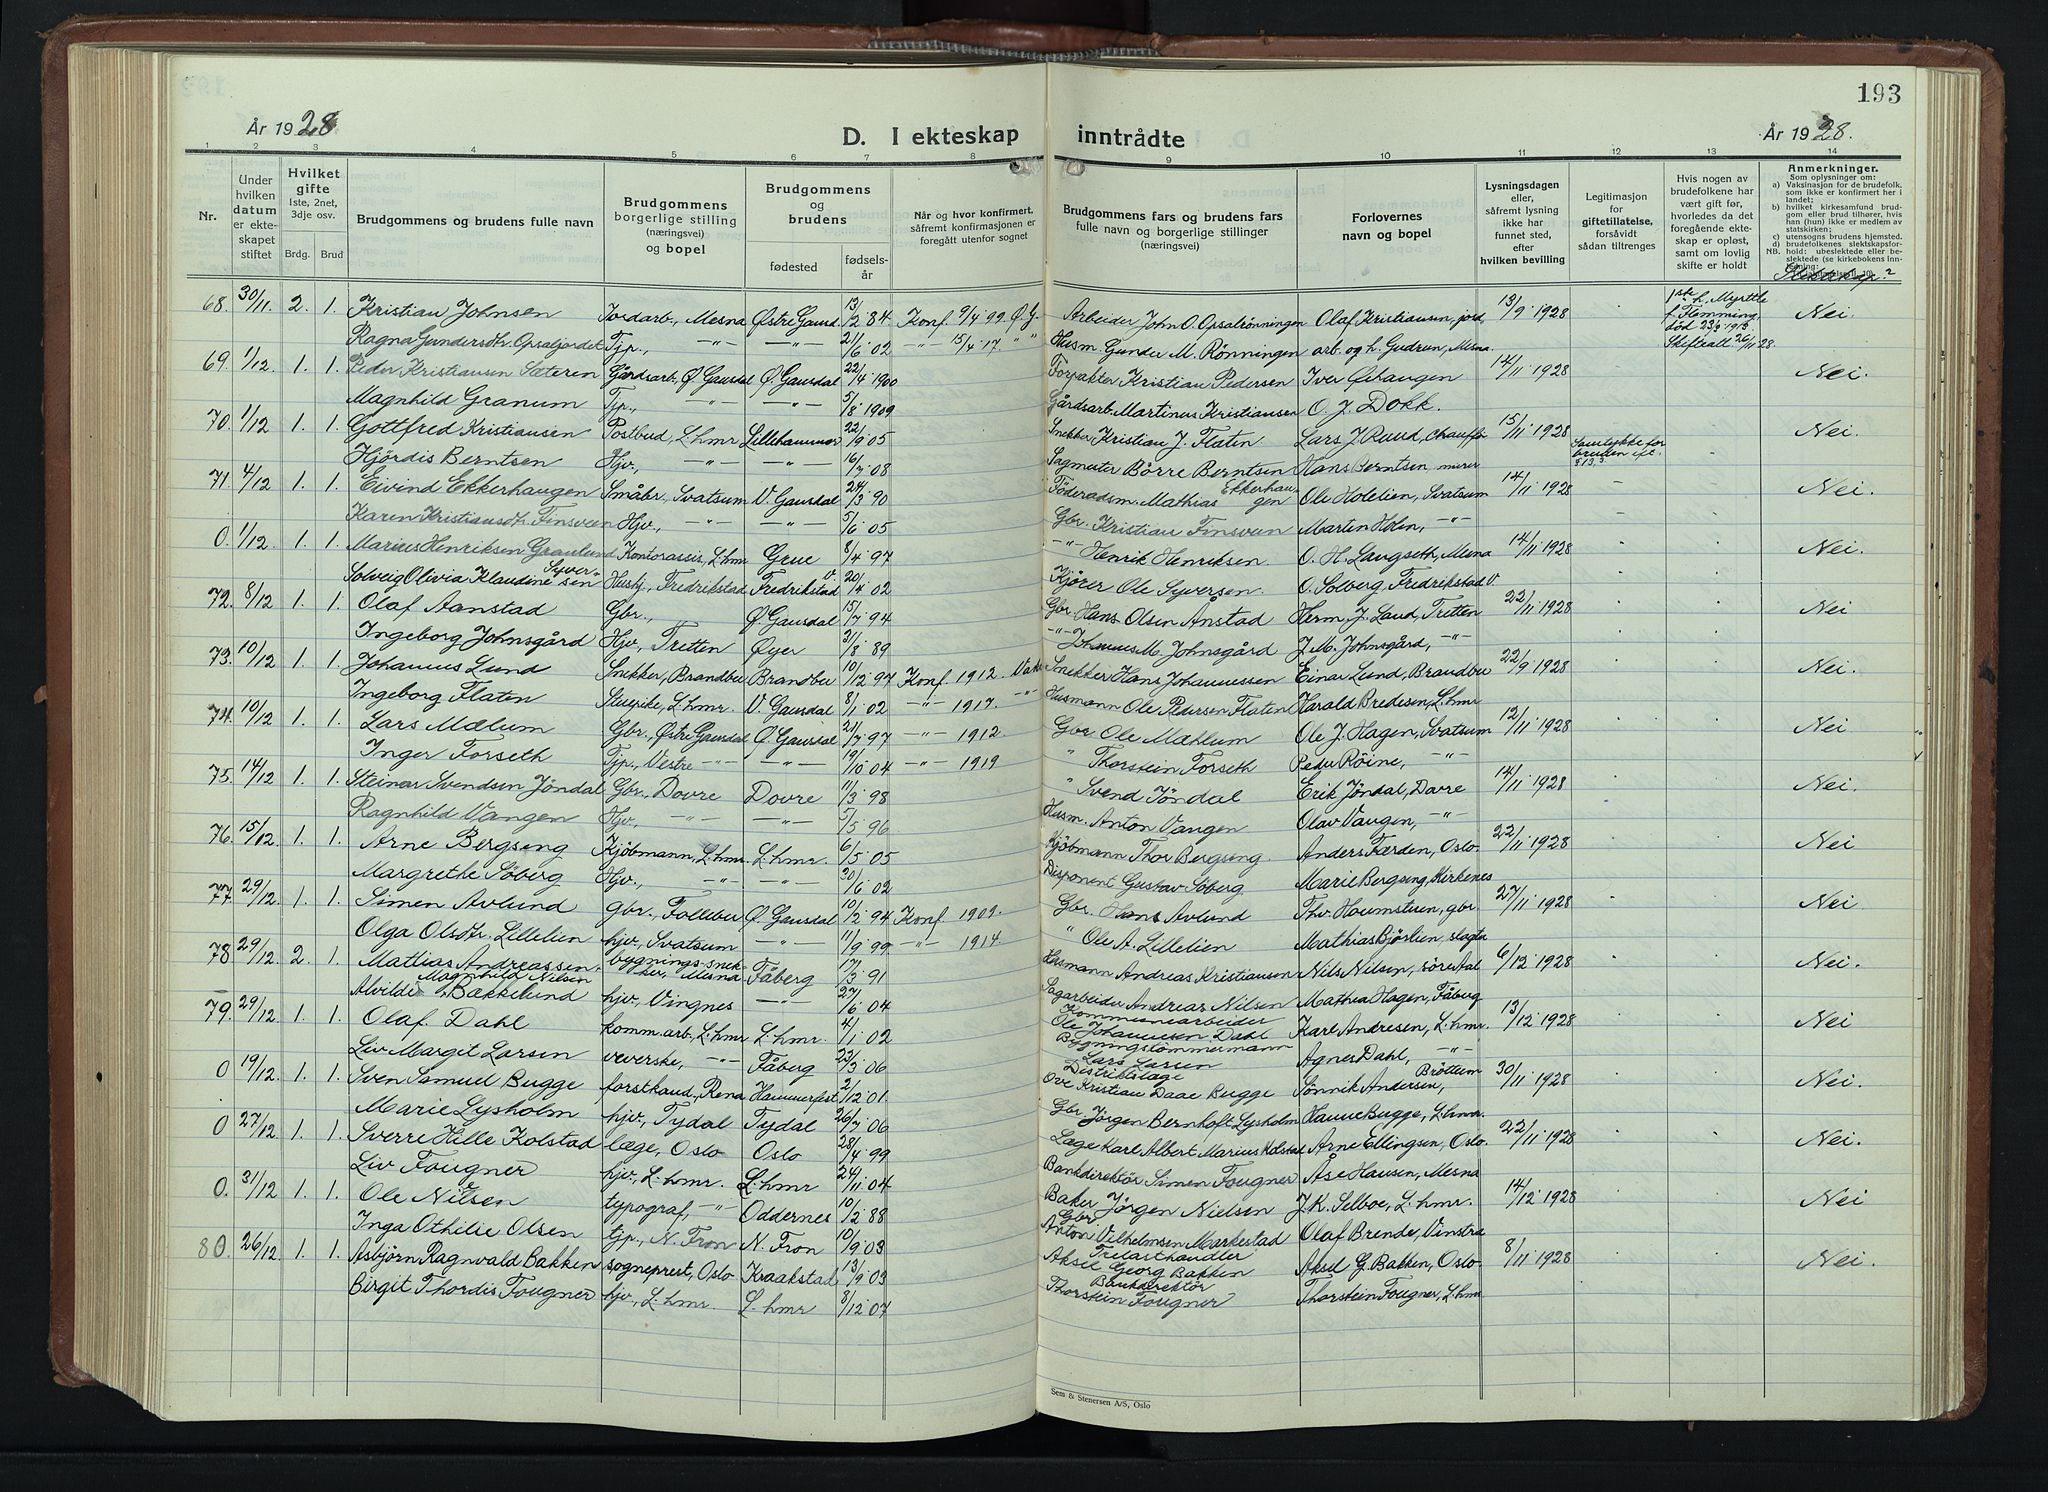 193
År 1928
D. I ekteskap inntrådte
År 1928.
1 2 3 4 5 6 7 8 9 10 11 12 13 14
Nr.
Under hvilken datum er ekteskapet stiftet
Hvilket gifte 1ste, 2net, 3dje osv.
Brdg. Brud
Brudgommens og brudens fulle navn
Brudgommens borgerlige stilling (næringsvei) og bopel
Brudgommens og brudens
fødested
fødselsår
Når og hvor konfirmert, såfremt konfirmasjonen er foregått utenfor sognet
Brudgommens fars og brudens fars fulle navn og borgerlige stillinger (næringsvei)
Forlovernes navn og bopel
Lysningsdagen eller, såfremt lysning ikke har funnet sted, efter hvilken bevilling
Legitimasjon for giftetillatelse, forsåvidt sådan tiltrenges
Hvis nogen av brudefolkene har vært gift før, hvorledes da det foregående ekteskap er opløst, samt om lovlig skifte er holdt
Anmerkninger.
Som oplysninger om:
a) Vaksinasjon for de brudefolk, som ikke er konfirmert her i landet;
b) hvilket kirkesamfund brudgom eller brud tilhører, hvis han (hun) ikke er medlem av statskirken;
c) utensogns brudens hjemsted.
d) brudefolkenes slektskapsforhold: ubeslektede eller beslektede
Slektskap?
68. 30/11 2. 1. Kristian Johnsen Jordarb., Mesna Østre Gausd. 13/2 84 Konf. 9/4 99. Ø.G. Arbeider John O. Opsalrønningen Olaf Kristiansen, jord. 13/9 1928 1ste h. Myrttle f. Flemming død 23/9 1913. Skifteatt. 26/11 28. Nei.
Ragna Gundersdtr. Opsaljordet Tjp., -"- -"- 21/6 02 -"- 15/4 17. " " Husm. Gunder M. Rønningen arb. og h. Gudrun, Mesna.
69. 1/12 1. 1. Peder Kristiansen Sæteren Gårdsarb., Ø. Gausdal Ø. Gausdal 22/4 1900 Forpakter Kristian Pedersen Iver Øihaugen 14/11 1928 Nei.
Magnhild Granum Tjp., -"- -"- 5/8 1909 Gårdsarb. Martinus Kristiansen O. J. Dokk.
70. 1/12 1. 1. Gottfred Kristiansen Postbud, L.hmr Lillehammer 22/9 05 Snekker Kristian J. Flaten Lars J. Ruud, Chauffør 15/11 1928 Samtykke for bruden Nei.
Hjördis Berntsen Hjv., -"- -"- 16/7 08 Sagmester Börre Berntsen Hans Berntsen, murer
71. 4/12 1. 1. Eivind Ekkerhaugen Småbr., Svatsum V. Gausdal 24/3 90 Föderadsm. Mathias Ekkerhaugen Ole Holelien, Svatsum 14/11 1928 Nei.
Karen Kristiansdtr. Finsveen Hjv., -"- -"- 5/6 05 Gbr. Kristian Finsveen Martin Holen, -"-
0. 1/12 1. 1. Marius Henriksen Granlund Kontorassis., L.hmr Grue 8/4 97 -"- Henrik Henriksen O. H. Langseth, Mesna 14/11 1928 Nei.
Solveig Olivia Klaudine Syversen Hushj., Fredrikstad Fredrikstad V. 20/4 02 Kjører Ole Syversen. O. Solberg, Fredrikstad V.
72. 8/12 1. 1. Olaf Aanstad Gbr., Ø. Gausdal 15/7 94 Gbr. Hans Olsen Ånstad Herm. J. Laud, Tretten 22/11 1928 Nei
Ingeborg Johnsgård Hjv., Tretten Øyer 31/8 89 -"- Johannes M. Johnsgård J. M. Johnsgård, -"-
73. 10/12 1. 1. Johannes Lund Snekker, Brandbu Brandbu 10/12 97 Konf. 1912. Snekker Hans Johannessen Einar Lund, Brandbu 22/9 1928 Nei.
Ingeborg Flaten Stuepike, L.hmr. V. Gausdal 8/1 02 -"- 1917. -"- Husmann Ole Pedersen Flaten Harald Bredesen, L.hmr
74. 10/12 1. 1. Lars Mælum Gbr., Østre Gausdal Ø. Gausdal 21/7 97 -"- 1912 Gbr. Ole Mæhlum Ole J. Hagen, Svatsum 12/11 1928 Nei
Inger Forseth Tjp., Vestre -"- -"- 19/10 04 -"- 1919 " Thorstein Forseth Peder Röine, -"-
75. 14/12 1. 1. Steinar Svendsen Jöndal Gbr., Dovre Dovre 11/3 98 " Svend Jöndal Erik Jöndal, Dovre 14/11 1928 Nei.
Ragnhild Vangen Hjv., -"- -"- 5/5 96 Husm. Anton Vangen Olav Vangen, -"-
76. 15/12 1. 1. Arne Bergseng Kjøbmann, L.hmr. L.hmr. 6/5 05 Kjøbmann Thor Bergseng. Anders Færden, Oslo. 22/11 1928 Nei
Margrethe Söberg Hjv., -"- -"- 30/6 02 Disponent Gustav Söberg Marie Bergseng, Kirkenes
77. 29/12 1. 1. Simen Avlund gbr., Follebu Ø. Gausdal 10/2 94 Konf. 1909. Gbr. Hans Avlund Thv. Haumstuen, gbr. 27/11 1928 Nei.
Olga Olsdtr. Lillelien hjv., Svatsum -"- 11/9 99 -"- 1914. " Ole A. Lillelien Mathias Björlien, slagta
78. 29/12 2. 1. Mattias Andreassen bygnings-snekker, Mesna Fåberg 17/3 91 Husmann Andreas Kristiansen Nils Nilsen, söre Aal 6/12 1928 Nei.
Alvilde Magnhild Nilsen Bækkelund hjv., Vingnes -"- 27/6 04 Sagarbeider Andreas Nilsen Mathea Hagen, Fåberg
79. 29/12 1. 1. Olaf Dahl komm. arb., L.hmr L.hmr. 4/1 02 Kommunearbeider Ole Johannesen Dahl Karl Andresen, L.hmr. 13/12 1928 Nei
Liv Margit Larsen veverske, -"- Fåberg 22/3 06 Bygningstömmermann Lars Larsen Agnes Dahl, -"-
0 19/12 1. 1. Sven Samuel Bugge forstkand., Rena Hammerfest 2/12 01 Distriktslæge Ove Kristian Daae Bugge Jönnik Andersen, Bröttum 30/11 1928 Nei.
Marie Lysholm hjv., Tydal Tydal 26/7 06 Gbr. Jörgen Bernhoft Lysholm Hanne Bugge, L.hmr.
0 27/12 1. 1. Sverre Hille Kolstad læge, Oslo Oslo 28/4 99 Læge Karl Albert Marius Kolstad Arne Ellingsen, Oslo. 22/11 1928 Nei.
Liv Fougner hjv., L.hmr. L.hmr 24/11 04 Bankdirektör Simen Fougner Åse Hansen, Mesna
0. 31/12 1. 1. Ole Nielsen typograf, -"- Oddernes 10/2 88 Baker Jörgen Nielsen J. K. Selboe, L.hmr. 14/12 1928 Nei
Inga Othilie Olsen tjp., N. Fron N. Fron 10/9 03 Gbr. Anton Vilhelmsen Markestad Olaf Brende, Vinstra
80. 26/12 1. 1. Asbjörn Ragnvald Bakken sogneprest, Oslo Kraakstad 13/9 03 Trelasthandler Aksel Georg Bakken Aksel G. Bakken, Oslo. 8/11 1928 Nei.
Birgit Thordis Fougner hjv., L.hmr. L.hmr 8/12 07 Bankdirektör Thorstein Fougner Thorstein Fougner, L.hmr.
Sem & Stenersen A/S, Oslo